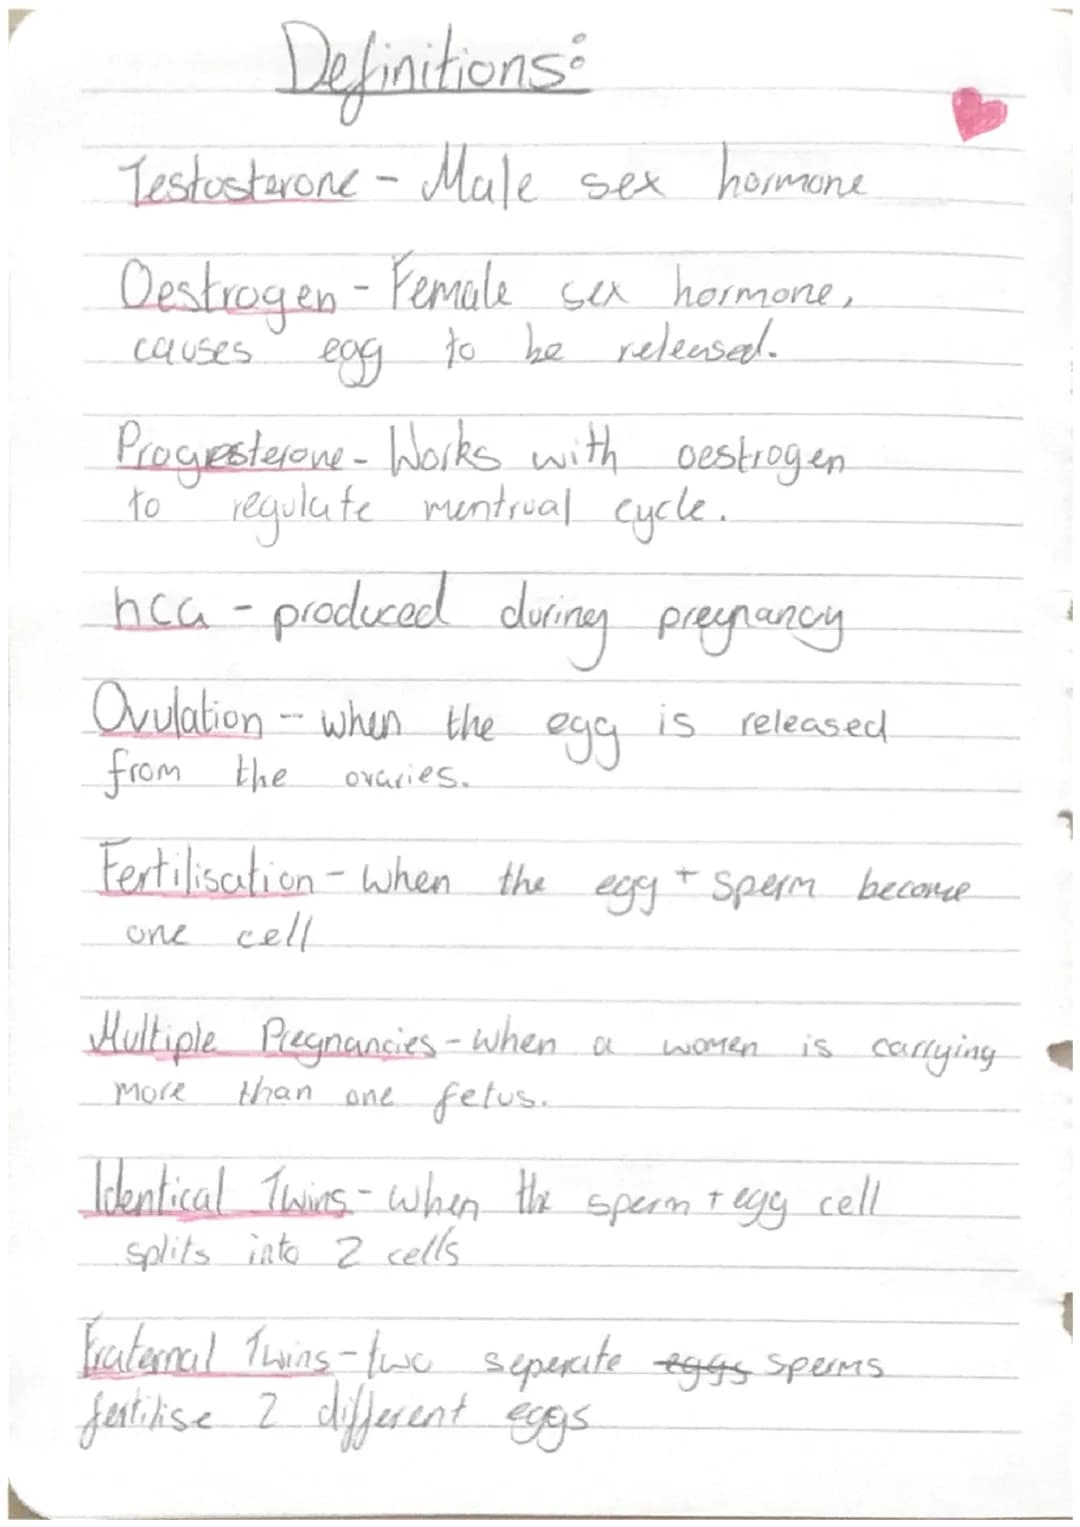 Definitions:
Testosterone - Male sex hormone
Oestrogen - Female sex hormone,
causes egg to be released.
Progesterone - Works with oestrogen
to regulate mentrual cycle.
hCG - produced during pregnancy
Ovulation - when the egg is released
from the ovaries.
Fertilisation - when the egg + sperm become
one cell
Multiple Pregnancies - when a women is carrying
more than one fetus.
Identical Twins - when the sperm + egg cell
splits into 2 cells
Fraternal Twins - two seperate eggs sperms
fertilise 2 different eggs